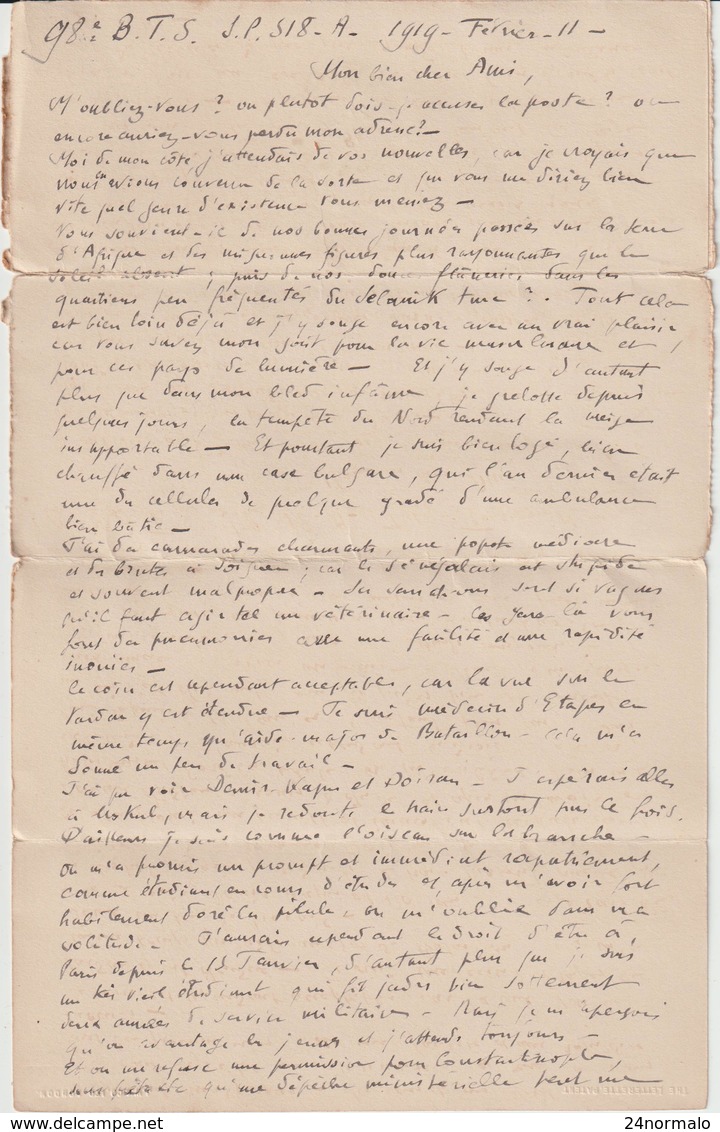 98e B.T.S. S.P. 518-A- 1919- Février-11-
Mon bien cher Ami,
M'oubliez-vous ? ou plutôt dois-je accuser la poste ? ou
encore auriez-vous perdu mon adresse ?-
Moi de mon côté j'attendais de vos nouvelles, car je croyais que
nous en avions convenu de la sorte et que vous me diriez bien
vite quel genre d'existence vous meniez-
Vous souvient-il de nos bonnes journées passées sur la terre
d'Afrique et des figures plus rayonnantes que le
soleil absent ; puis de nos douces flâneries dans les
quartiers peu fréquentés du Selanik turc ?. Tout cela
est bien loin déjà et j'y songe encore avec un vrai plaisir
car vous savez mon goût pour la vie musulmane et
pour ces pays de lumière- Et j'y songe d'autant
plus que dans mon bled infâme, je grelotte depuis
quelques jours, la tempête du Nord rendant la neige
insupportable- Et pourtant je suis bien logé, bien
chauffé dans une case bulgare, qui l'an dernier était
une des cellules de quelque gradé d'une ambulance
bien bâtie-
J'ai des camarades charmants, une popote médiocre
et des brutes à soigner ; car le Sénégalais est stupide
et souvent malpropre- Les sont si vagues
qu'il faut agir tel un vétérinaire- Ces gens là vous
font des pneumonies avec une facilité et une rapidité
inouïes-
Le coin est cependant acceptable, car la vue sur le
Vardar y est étendue- Je suis médecin d'Etapes en
même temps qu'aide-major de Bataillon- cela m'a
donné un peu de travail-
J'ai pu voir et - J'espérais aller
à , mais je redoute le train surtout par le froid.
D'ailleurs je suis comme l'oiseau sur la branche-
on m'a promis un prompt et immédiat rapatriement,
comme étudiant en cours d'études et, après m'avoir fort
habilement doré la pilule, on m'oublie dans ma
solitude- J'aurais cependant le droit d'être à
Paris depuis le 15 Janvier, d'autant plus que je suis
un très vieil étudiant qui fit jadis bien sottement
deux années de service militaire- Mais je m'aperçois
qu'on avantage les jeunes et j'attends toujours-
Et on me refuse une permission pour Constantinople,
sous prétexte qu'une dépêche ministérielle peut me
24normalo